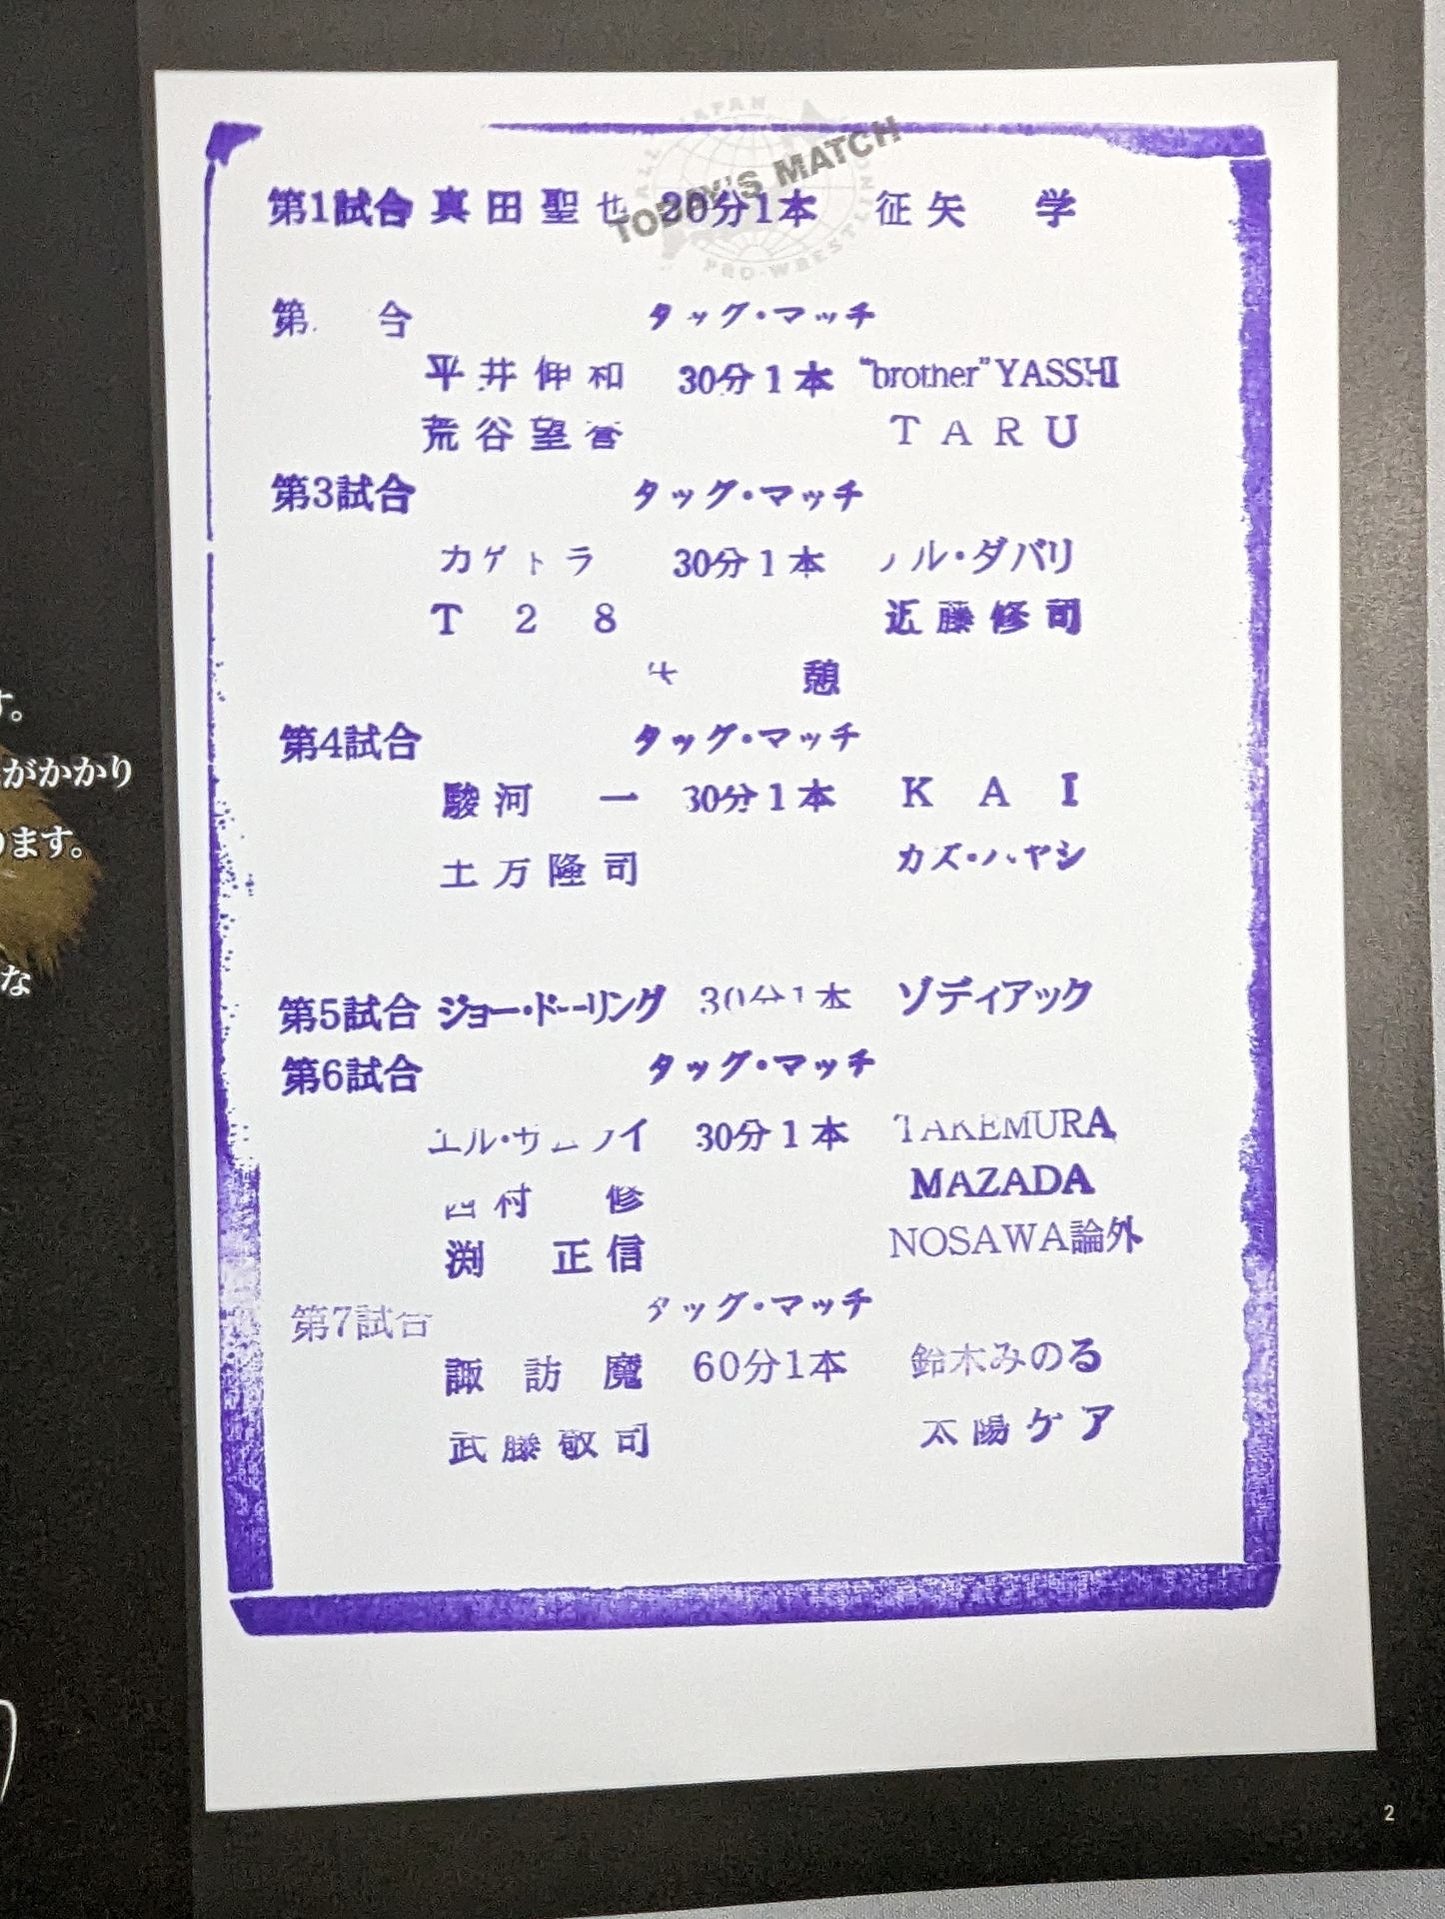 ALL JAPAN
PRO-WRESTLING
TODAY'S MATCH
第1試合 真田聖也 20分1本 征矢 学
第 合 タッグ・マッチ
平井伸和 30分1本 "brother"YASSHI
荒谷望誉 TARU
第3試合 タッグ・マッチ
カゲトラ 30分1本 ノル・ダバリ
T28 近藤修司
憩
第4試合 タッグ・マッチ
駿河 一 30分1本 KAI
土方隆司 カズ・ハヤシ
第5試合 ジョー・ドーリング 30分1本 ゾディアック
第6試合 タッグ・マッチ
エル・サムライ 30分1本 TAKEMURA
西村 修 MAZADA
渕 正信 NOSAWA論外
第7試合 タッグ・マッチ
諏訪魔 60分1本 鈴木みのる
武藤敬司 太陽ケア
す。
がかかり
ります。
な
2